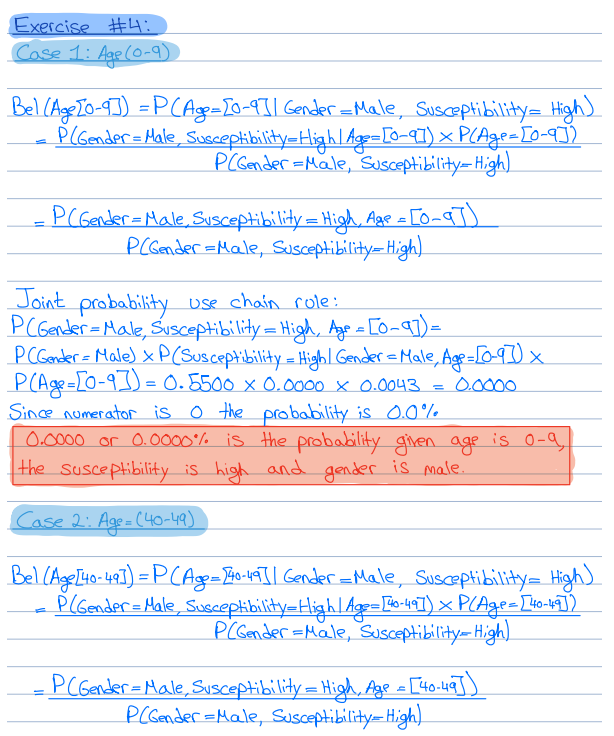 Exercise #4:
Case 1: Age(0-9)
Bel(Age[0-9]) = P(Age=[0-9] | Gender=Male, Susceptibility= High)
= P(Gender=Male, Susceptibility=High | Age=[0-9]) × P(Age=[0-9])
P(Gender=Male, Susceptibility=High)
= P(Gender=Male, Susceptibility=High, Age=[0-9])
P(Gender=Male, Susceptibility=High)
Joint probability use chain rule:
P(Gender=Male, Susceptibility=High, Age=[0-9])=
P(Gender=Male) × P(Susceptibility=High | Gender=Male, Age=[0-9]) ×
P(Age=[0-9]) = 0.5500 × 0.0000 × 0.0043 = 0.0000
Since numerator is 0 the probability is 0.0%
0.0000 or 0.0000% is the probability given age is 0-9,
the susceptibility is high and gender is male.
Case 2: Age=(40-49)
Bel(Age[40-49]) = P(Age=[40-49] | Gender=Male, Susceptibility= High)
= P(Gender=Male, Susceptibility=High | Age=[40-49]) × P(Age=[40-49])
P(Gender=Male, Susceptibility=High)
= P(Gender=Male, Susceptibility=High, Age=[40-49])
P(Gender=Male, Susceptibility=High)